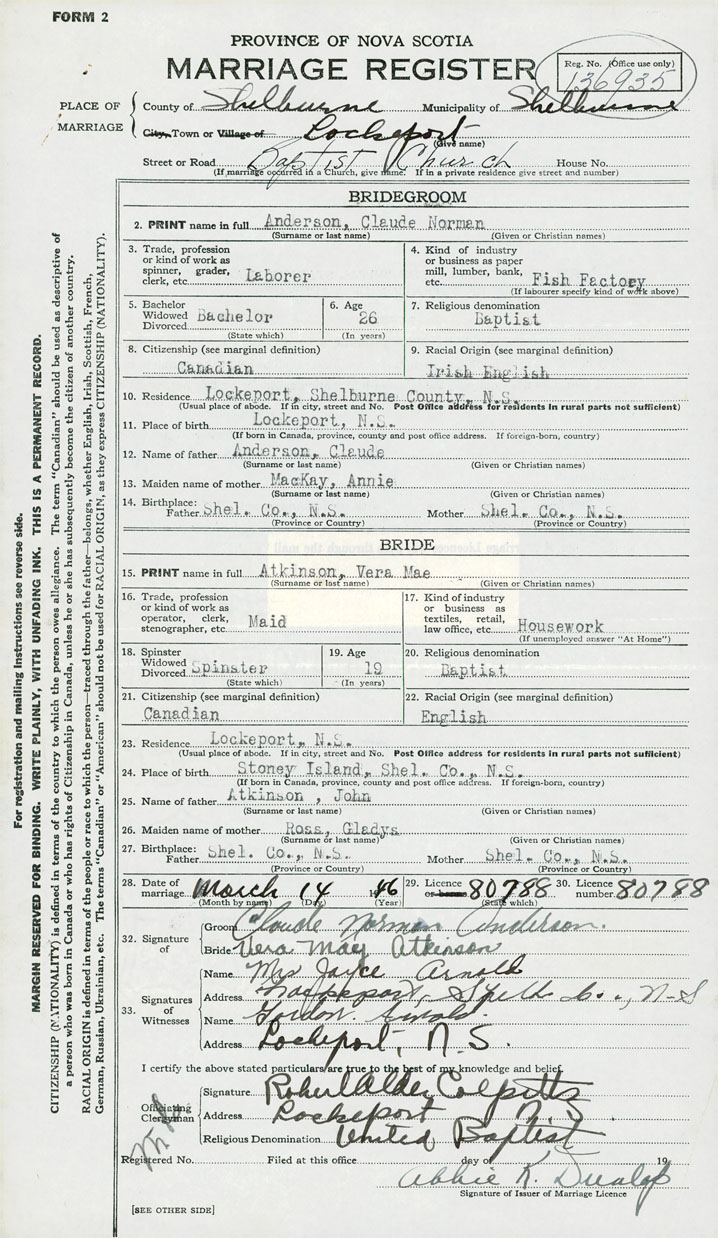 FORM 2
PROVINCE OF NOVA SCOTIA
MARRIAGE REGISTER
Reg. No. (Office use only)
136935
PLACE OF MARRIAGE
County of Shelburne Municipality of Shelburne
City, Town or Village of Lockeport
(Give name)
Street or Road Baptist Church House No.
(If marriage occurred in a Church, give name. If in a private residence give street and number)
BRIDEGROOM
2. PRINT name in full Anderson, Claude Norman
(Surname or last name) (Given or Christian names)
3. Trade, profession or kind of work as spinner, grader, clerk, etc. Laborer
4. Kind of industry or business as paper mill, lumber, bank, etc. Fish Factory
(If labourer specify kind of work above)
5. Bachelor Widowed Divorced Bachelor
(State which)
6. Age 26
(In years)
7. Religious denomination
Baptist
8. Citizenship (see marginal definition)
Canadian
9. Racial Origin (see marginal definition)
Irish English
10. Residence Lockeport, Shelburne County, N.S.
(Usual place of abode. If in city, street and No. Post Office address for residents in rural parts not sufficient)
11. Place of birth Lockeport, N.S.
(If born in Canada, province, county and post office address. If foreign-born, country)
12. Name of father Anderson, Claude
(Surname or last name) (Given or Christian names)
13. Maiden name of mother MacKay, Annie
(Surname or last name) (Given or Christian names)
14. Birthplace: Father Shel. Co., N.S. Mother Shel. Co., N.S.
(Province or Country) (Province or Country)
BRIDE
15. PRINT name in full Atkinson, Vera Mae
(Surname or last name) (Given or Christian names)
16. Trade, profession or kind of work as operator, clerk, stenographer, etc. Maid
17. Kind of industry or business as textiles, retail, law office, etc. Housework
(If unemployed answer "At Home")
18. Spinster Widowed Divorced Spinster
(State which)
19. Age 19
(In years)
20. Religious denomination
Baptist
21. Citizenship (see marginal definition)
Canadian
22. Racial Origin (see marginal definition)
English
23. Residence Lockeport, N.S.
(Usual place of abode. If in city, street and No. Post Office address for residents in rural parts not sufficient)
24. Place of birth Stoney Island, Shel. Co., N.S.
(If born in Canada, province, county and post office address. If foreign-born, country)
25. Name of father Atkinson , John
(Surname or last name) (Given or Christian names)
26. Maiden name of mother Ross, Gladys
(Surname or last name) (Given or Christian names)
27. Birthplace: Father Shel. Co., N.S. Mother Shel. Co., N.S.
(Province or Country) (Province or Country)
28. Date of marriage March 14 1946 29. Licence or banns 80788 30. Licence number 80788
(Month by name) (Day) (Year) (State which)
32. Signature of
Groom Claude Norman Anderson.
Bride Vera May Atkinson
33. Signatures of Witnesses
Name Mrs Jayce Arnold
Address Lockeport, Shelb. Co., N-S
Name Gordon Arnold
Address Lockeport, N.S.
I certify the above stated particulars are true to the best of my knowledge and belief.
Officiating Clergyman
Signature Robert Alder Colpitts
Address Lockeport N.S.
Religious Denomination United Baptist
Registered No. Filed at this office day of 19
Abbie K. Dunlop
Signature of Issuer of Marriage Licence
[SEE OTHER SIDE]
For registration and mailing instructions see reverse side.
MARGIN RESERVED FOR BINDING. WRITE PLAINLY, WITH UNFADING INK. THIS IS A PERMANENT RECORD.
CITIZENSHIP (NATIONALITY) is defined in terms of the country to which the person owes allegiance. The term "Canadian" should be used as descriptive of
a person who was born in Canada or who has rights of Citizenship in Canada, unless he or she has subsequently become the citizen of another country.
RACIAL ORIGIN is defined in terms of the people or race to which the person—traced through the father—belongs, whether English, Irish, Scottish, French,
German, Russian, Ukrainian, etc. The terms "Canadian" or "American" should not be used for RACIAL ORIGIN, as they express CITIZENSHIP (NATIONALITY).